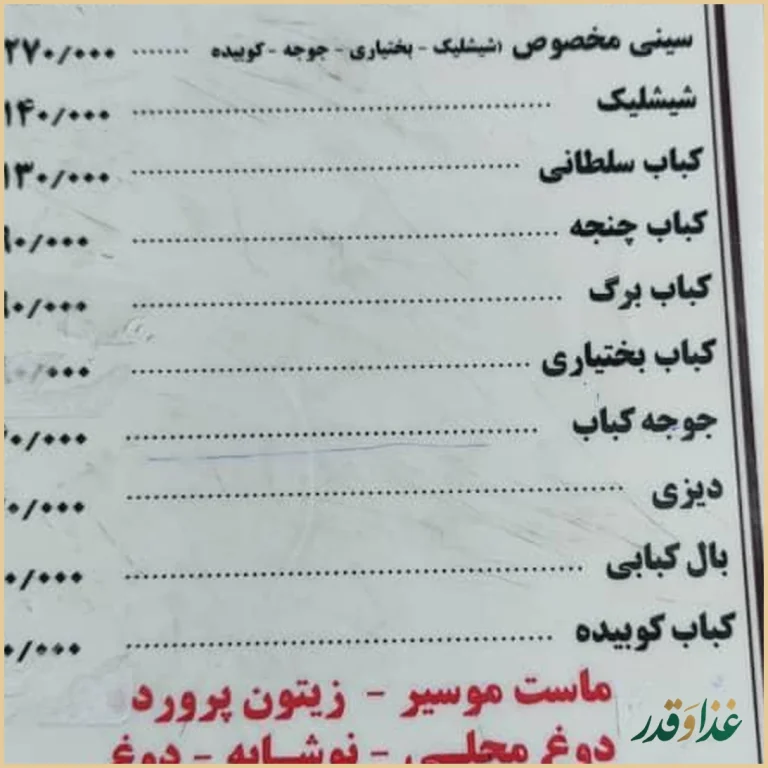 سینی مخصوص (شیشلیک - بختیاری - جوجه - کوبیده ........ ۲۷۰/۰۰۰
شیشلیک ........ ۱۴۰/۰۰۰
کباب سلطانی ........ ۱۳۰/۰۰۰
کباب چنجه ........ ۹۰/۰۰۰
کباب برگ ........ ۹۰/۰۰۰
کباب بختیاری ........ ۰/۰۰۰
جوجه کباب ........ ۰/۰۰۰
دیزی ........ ۰/۰۰۰
بال کبابی ........ ۰/۰۰۰
کباب کوبیده ........ ۰/۰۰۰
ماست موسیر - زیتون پرورد
دوغ محلی - نوشابه - دوغ
غذا و قدر